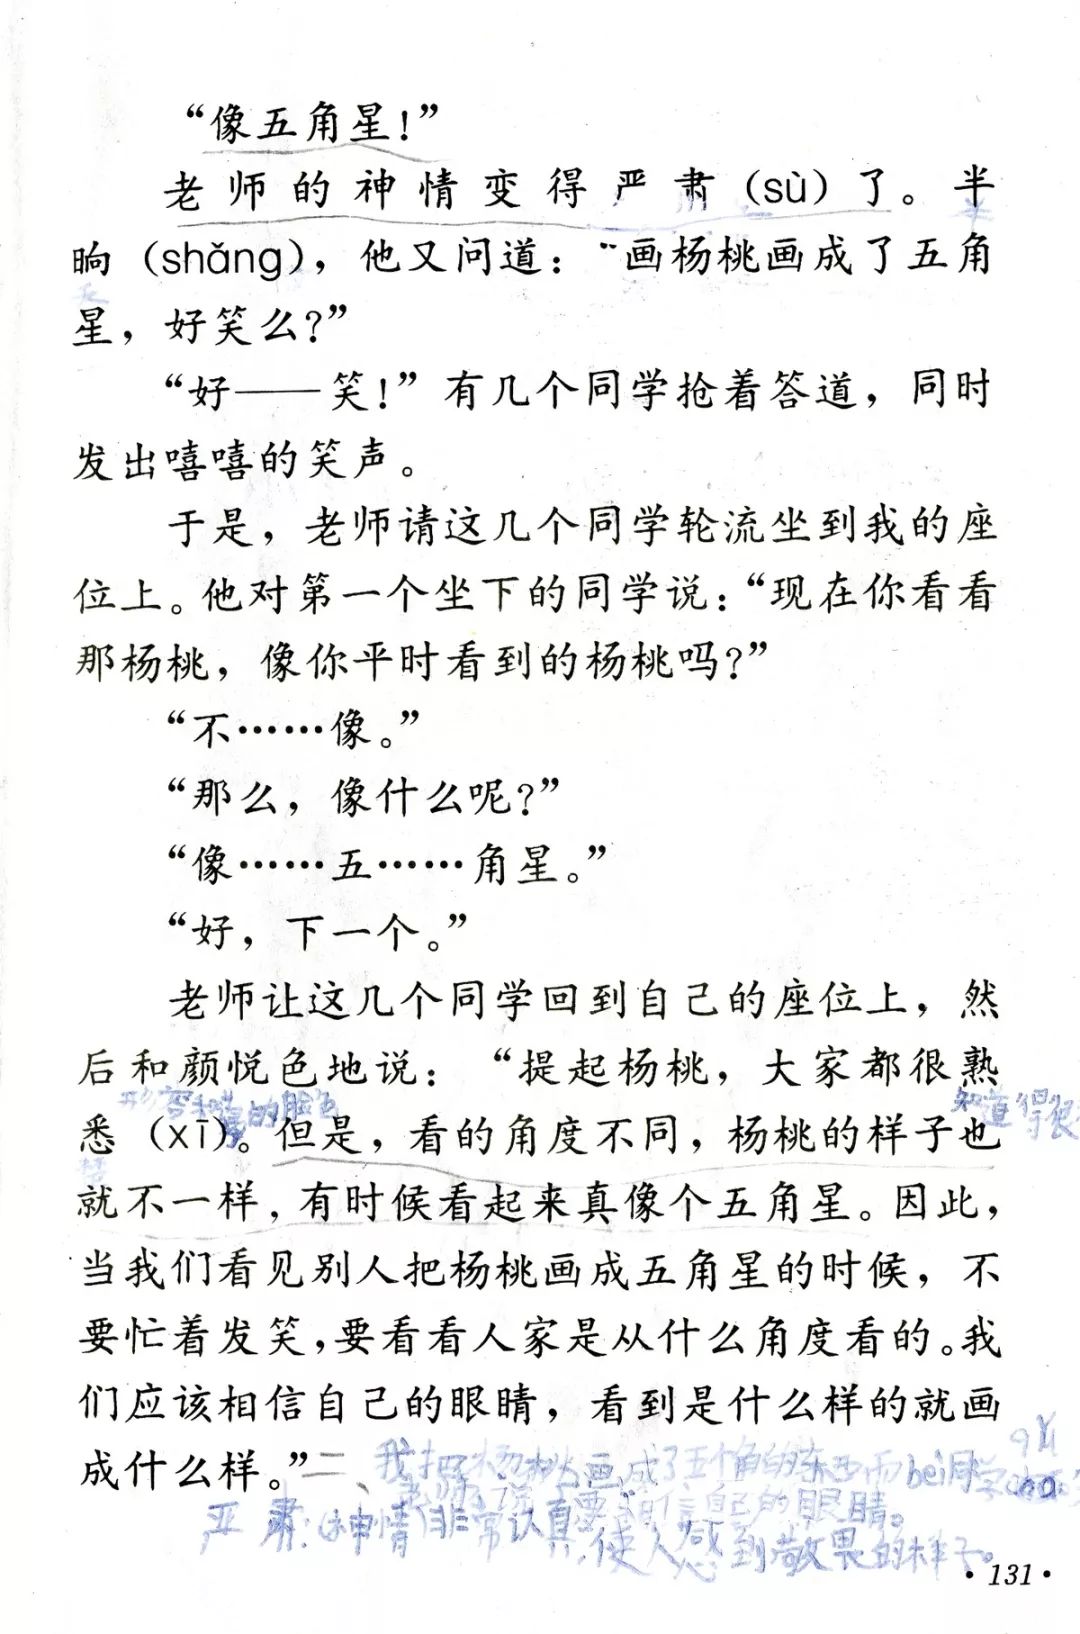 “像五角星！”
老师的神情变得严肃（sù）了。半
晌（shǎng），他又问道：“画杨桃画成了五角
星，好笑么？”
“好——笑！”有几个同学抢着答道，同时
发出嘻嘻的笑声。
于是，老师请这几个同学轮流坐到我的座
位上。他对第一个坐下的同学说：“现在你看看
那杨桃，像你平时看到的杨桃吗？”
“不……像。”
“那么，像什么呢？”
“像……五……角星。”
“好，下一个。”
老师让这几个同学回到自己的座位上，然
后和颜悦色地说：“提起杨桃，大家都很熟
的脸色 知道得很
悉（xī）。但是，看的角度不同，杨桃的样子也
就不一样，有时候看起来真像个五角星。因此，
当我们看见别人把杨桃画成五角星的时候，不
要忙着发笑，要看看人家是从什么角度看的。我
们应该相信自己的眼睛，看到是什么样的就画
成什么样。”二、我把杨桃画成了五个角的东西而bei同学
老师说要相信自己的眼睛。
严肃：（神情）非常认真，使人感到敬畏的样子。
·131·